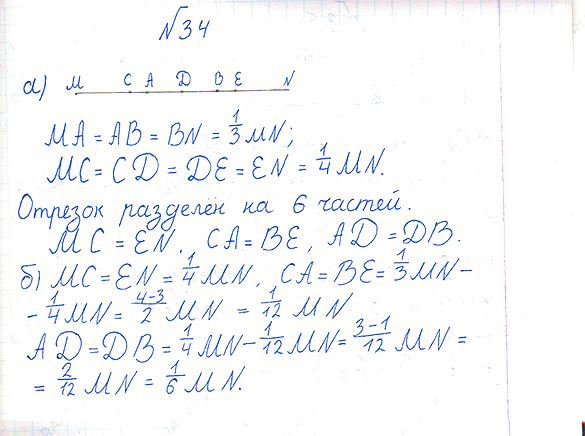 №34
а) M C A D B E N
MA = AB = BN = 1/3 MN;
MC = CD = DE = EN = 1/4 MN.
Отрезок разделен на 6 частей.
MC = EN, CA = BE, AD = DB.
б) MC = EN = 1/4 MN, CA = BE = 1/3 MN -
- 1/4 MN = (4-3)/2 MN = 1/12 MN
AD = DB = 1/4 MN - 1/12 MN = (3-1)/12 MN =
= 2/12 MN = 1/6 MN.